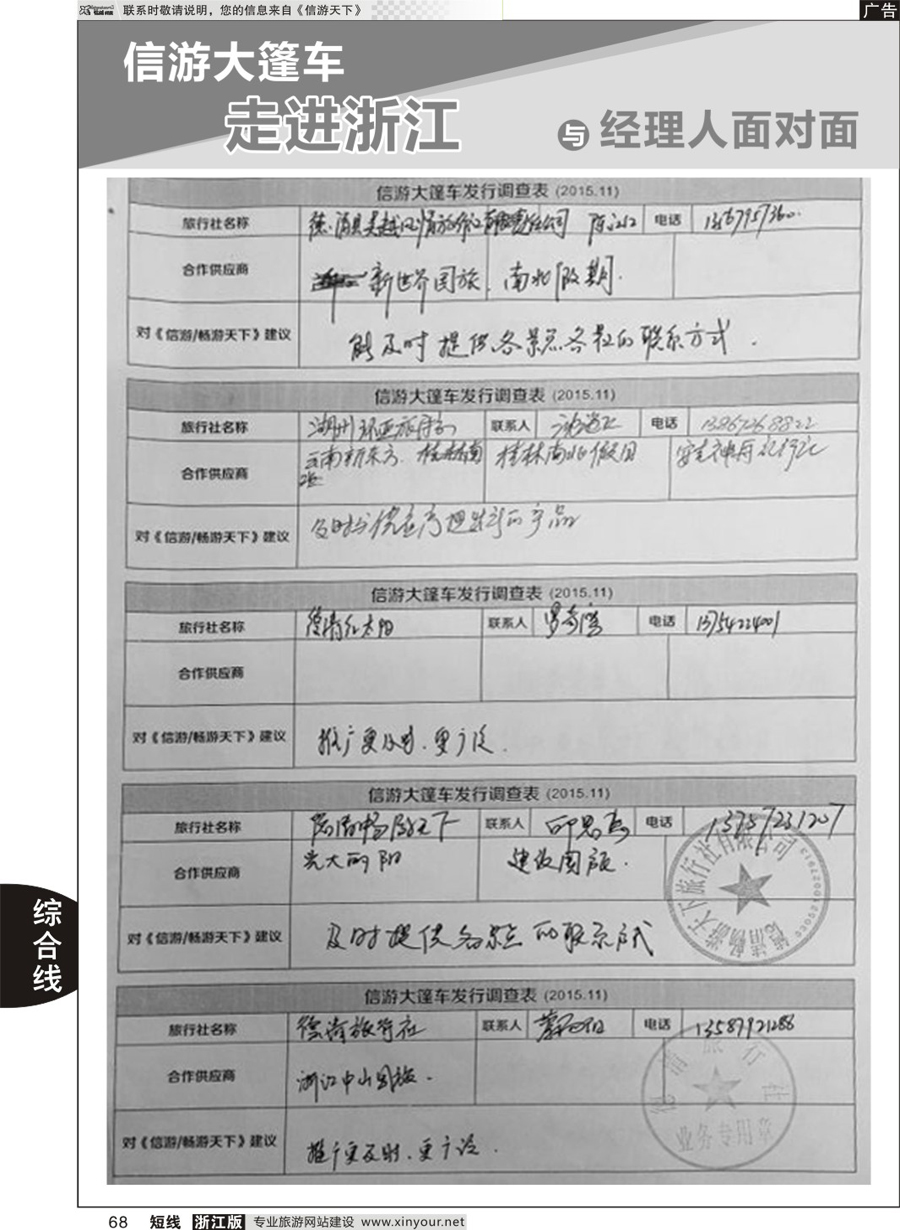 联系时敬请说明，您的信息来自《信游天下》
广告
信游大篷车
走进浙江 与 经理人面对面
信游大篷车发行调查表 (2015.11)
旅行社名称 电话
合作供应商 新世界国旅. 南北假期.
对《信游/畅游天下》建议 能及时提供各景点各社的联系方式.
信游大篷车发行调查表 (2015.11)
旅行社名称 联系人 电话 13867268822
合作供应商 云南新东方. 桂林南北假日
对《信游/畅游天下》建议
信游大篷车发行调查表 (2015.11)
旅行社名称 德清红太阳 联系人 电话 13754224001
合作供应商
对《信游/畅游天下》建议 推广更及时、更广泛.
信游大篷车发行调查表 (2015.11)
旅行社名称 德清畅游天下 联系人 电话 13757231207
合作供应商 光大 阳 建设国旅.
对《信游/畅游天下》建议 及时提供各景点的联系方式
德清畅游天下旅行社有限公司
信游大篷车发行调查表 (2015.11)
旅行社名称 德清旅行社 联系人 电话 13587921288
合作供应商 浙江中山国旅.
对《信游/畅游天下》建议 推广更及时、更广泛.
德清旅行社
业务专用章
综合线
68 短线 浙江版 专业旅游网站建设 www.xinyour.net